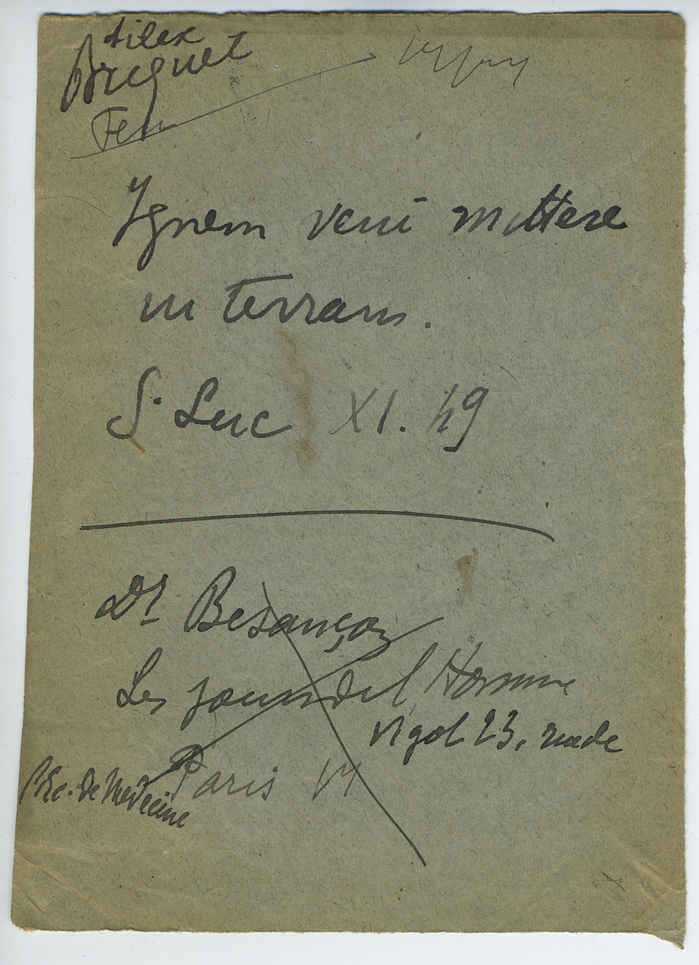 Alex
Briquet
Ignem veni mittere
in terram.
S. Luc XI. 49
Dr Besançon
Les jours de l'Homme
Vigot 23, rue de
l'Ec. de Médecine
Paris VI